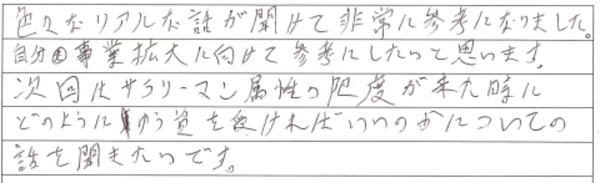 色々なリアルな話が聞けて非常に参考になりました。
自分の事業拡大に向けて参考にしたいと思います。
次回はサラリーマン属性の限度が来た時に
どのようにゆう資を受ければいいのかについての
話を聞きたいです。